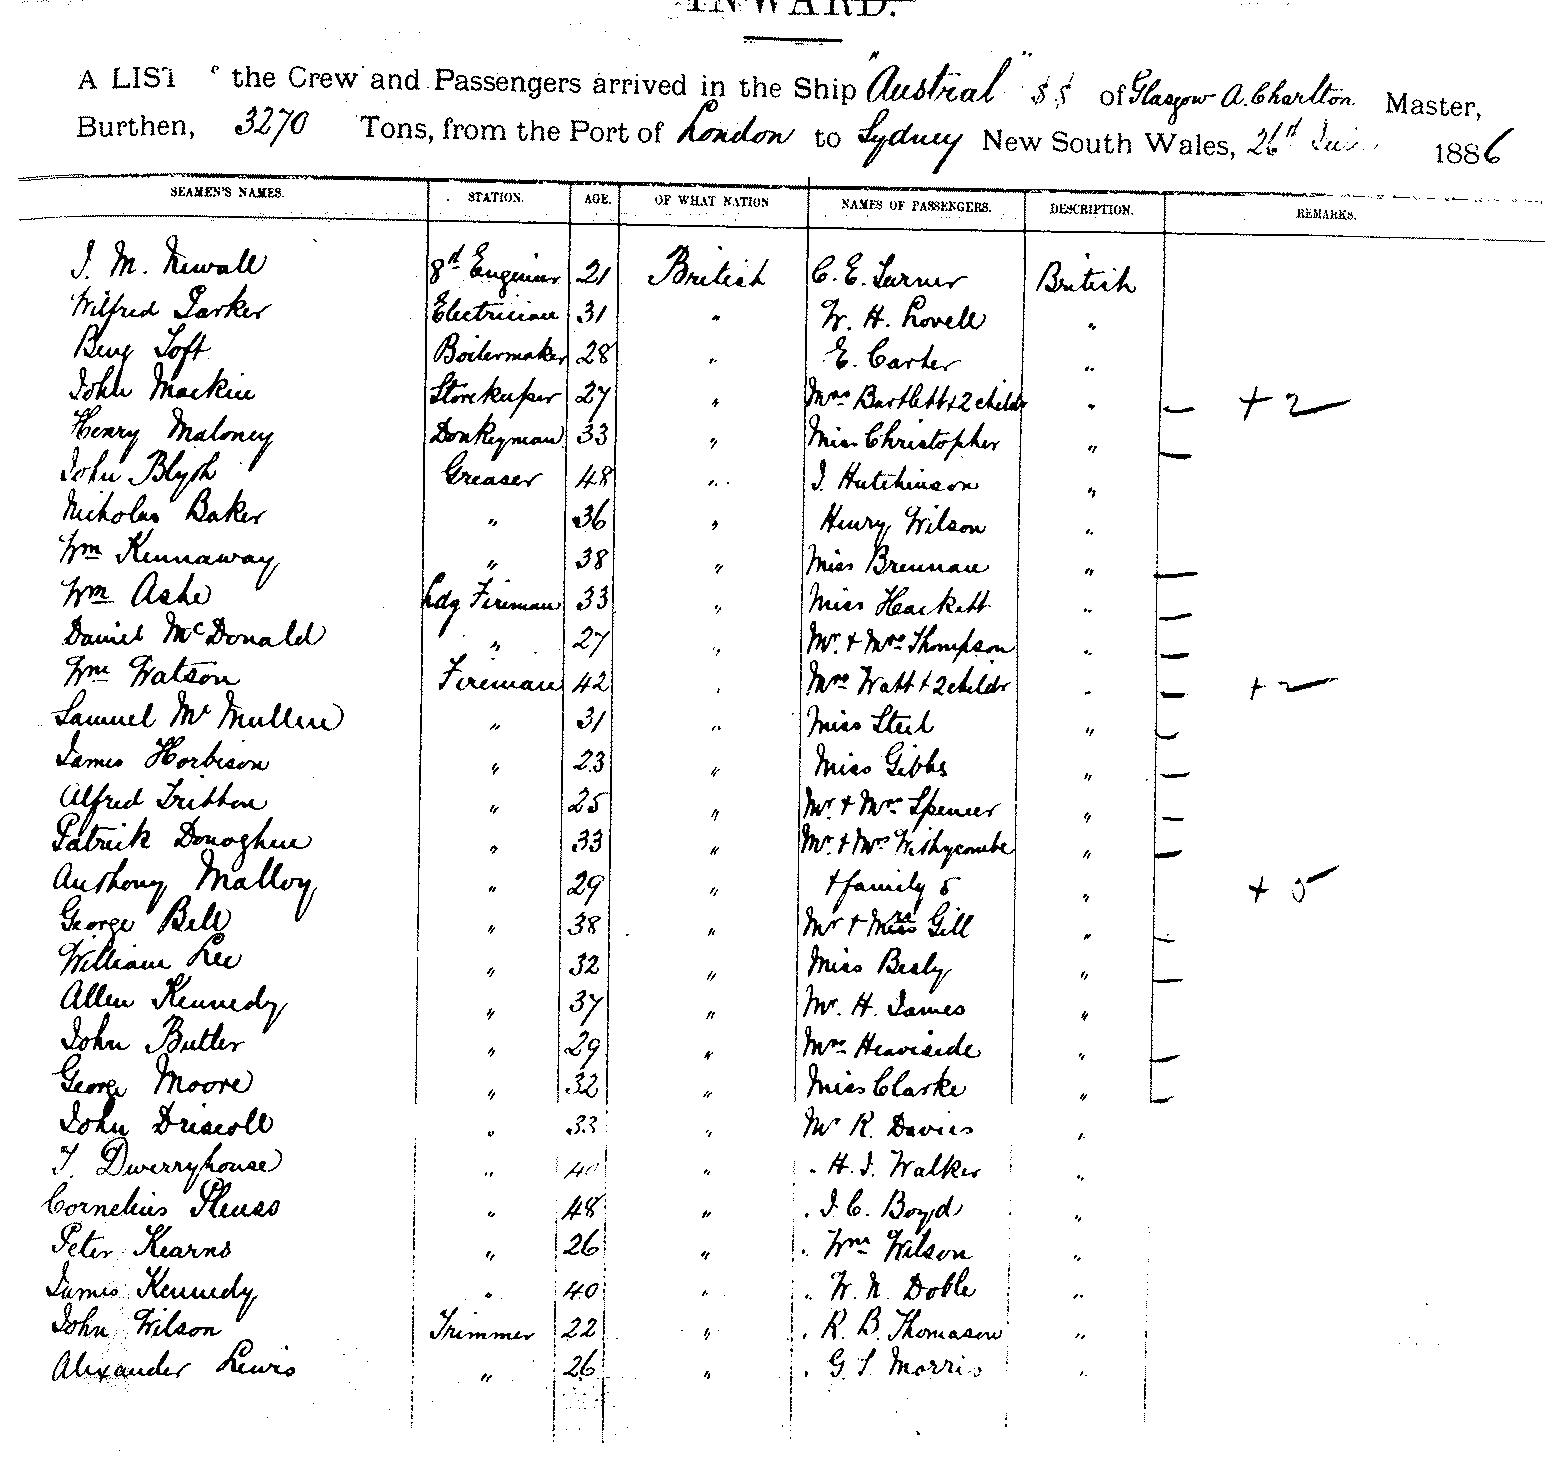 INWARD.
A LIST the Crew and Passengers arrived in the Ship "Austral" SS of Glasgow A. Charlton Master,
Burthen, 3270 Tons, from the Port of London to Sydney New South Wales, 26th 1886
SEAMEN'S NAMES. STATION. AGE. OF WHAT NATION NAMES OF PASSENGERS. DESCRIPTION. REMARKS.
J. M. Newall 8th Engineer 21 British C. E. Turner British
Wilfred Parker Electrician 31 " W. H. Lovell "
Benj Toft Boilermaker 28 " E. Carter "
John Mackie Storekeeper 27 " Mrs Bartlett + 2 childr " — + 2
Henry Maloney Donkeyman 33 " Miss Christopher " —
John Blyth Greaser 48 " J. Hutchinson "
Nicholas Baker " 36 " Henry Wilson "
Wm Kennaway " 38 " Miss Brennan " —
Wm Ashe Ldg Fireman 33 " Miss Hackett " —
Daniel McDonald " 27 " Mr. + Mrs Thompson " —
Wm Watson Fireman 42 " Mrs Watt + 2 childr " — + 2
Samuel Mc Mullen " 31 " Miss Steel " —
James Horbison " 23 " Miss Gibbs " —
Alfred Tribben " 25 " Mr. + Mrs Spencer " —
Patrick Donoghue " 33 " Mr. + Mrs Withycombe " —
Anthony Malloy " 29 " + family 5 " + 5
George Bell " 38 " Mr + Mrs Gill " —
William Lee " 32 " Miss Bealy " —
Allen Kennedy " 37 " Mr. H. James "
John Butler " 29 " Mrs Heaviside " —
George Moore " 32 " Miss Clarke " —
John Driscoll " 33 " Mr R. Davies "
T. Dwerryhouse " 40 " . H. J. Walker "
Cornelius Pleuss " 48 " . J. C. Boyd "
Peter Kearns " 26 " . Wm Wilson "
James Kennedy " 40 " . W. N. Doble "
John Wilson Trimmer 22 " . R. B. Thomason "
Alexander Lewis " 26 " . G S Morris "